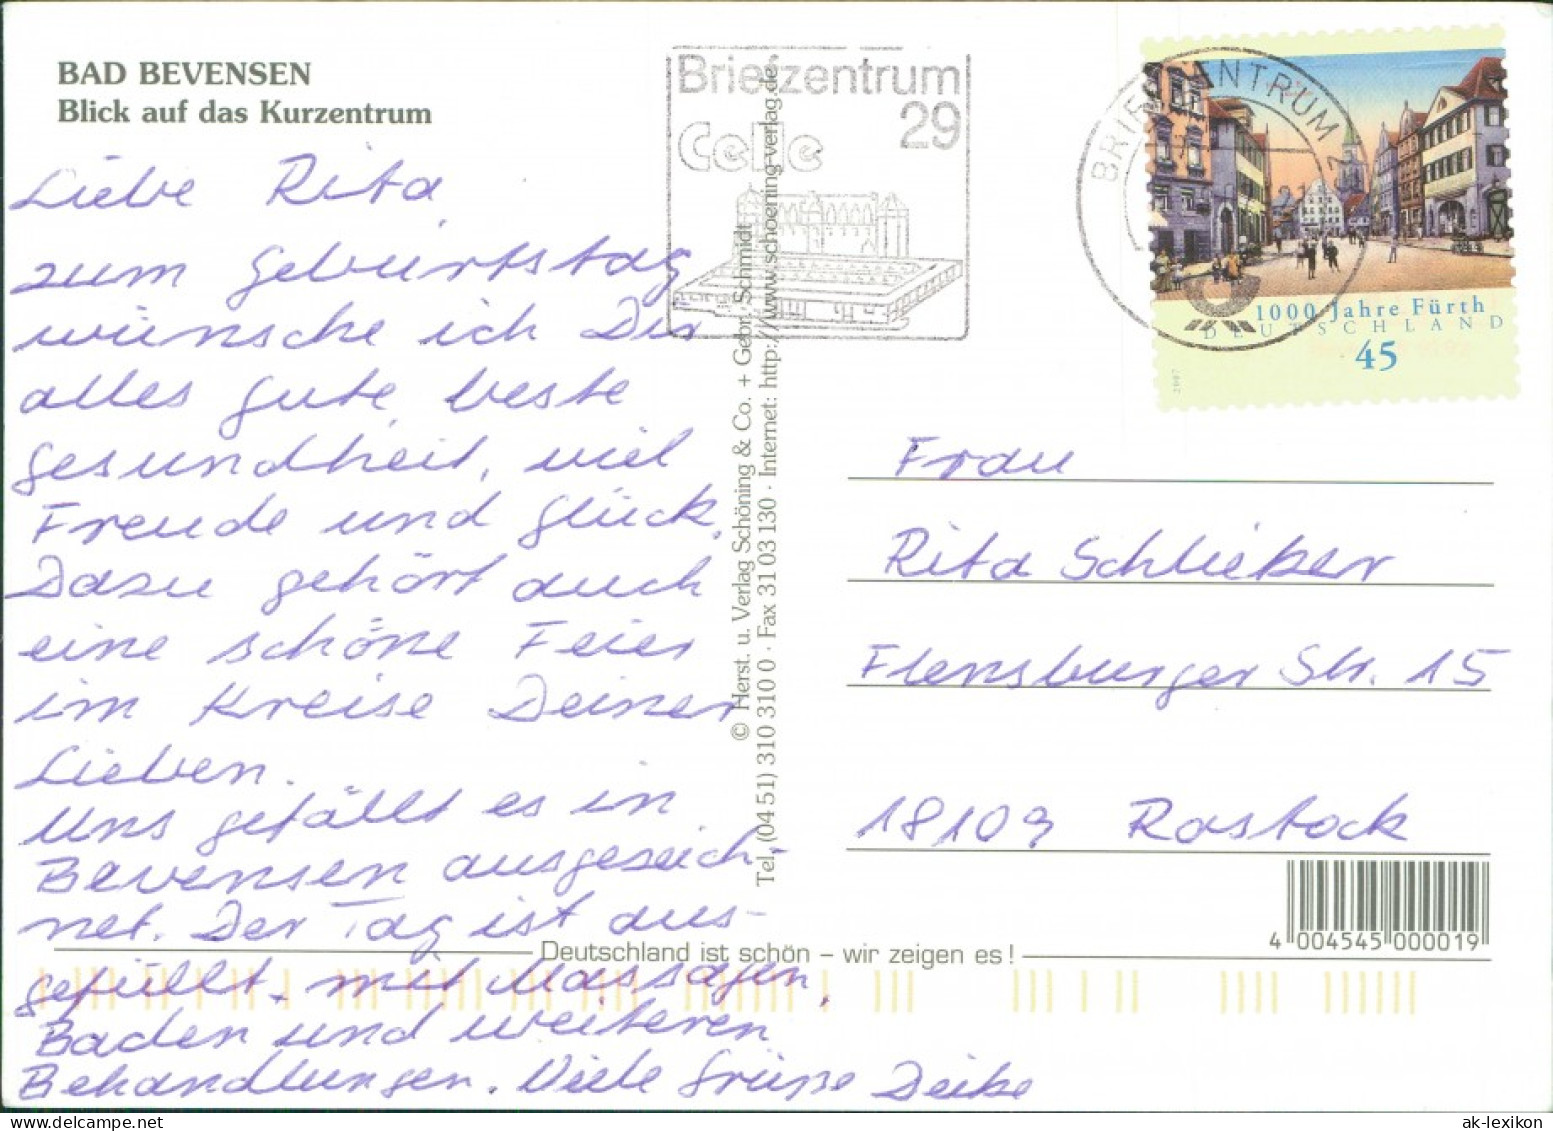 BAD BEVENSEN
Blick auf das Kurzentrum
Liebe Rita,
zum Geburtstag
wünsche ich Dir
alles Gute, beste
Gesundheit, viel
Freude und Glück.
Dazu gehört auch
eine schöne Feier
im Kreise Deiner
Lieben.
Uns gefällt es in
Bevensen ausgezeich-
net. Der Tag ist aus-
gefüllt mit Massagen,
Baden und weiteren
Behandlungen. Viele Grüße
Briefzentrum
29
Celle
© Herst. u. Verlag Schöning & Co. + Gebr. Schmidt
Tel. (04 51) 310 310 0 · Fax 31 03 130 · Internet: http://www.schoening-verlag.de
BRIEFZENTRUM 2
21
1000 Jahre Fürth
DEUTSCHLAND
45
2007
Frau
Rita Schlieker
Flensburger Str. 15
18109 Rostock
4 004545 000019
Deutschland ist schön – wir zeigen es!
ak-lexikon